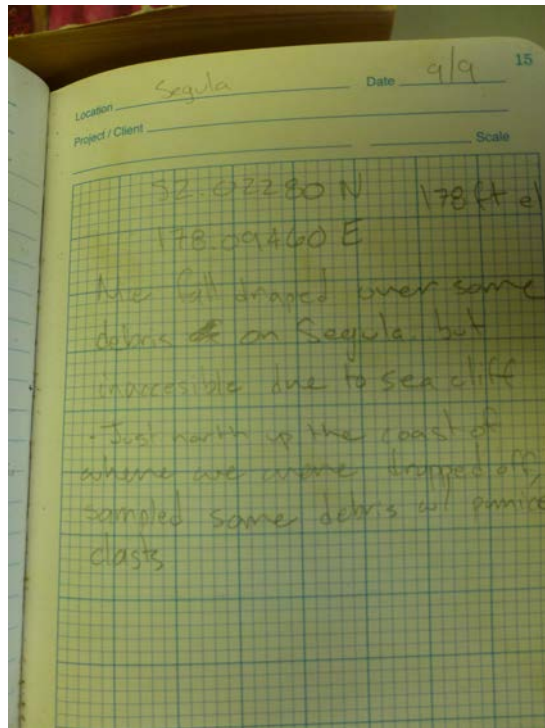 15
Location Segula Date 9/9
Project / Client
Scale
52.02280 N 178 ft el
178.09460 E
fall draped over some
debris on Segula, but
inaccesible due to sea cliff
- Just north up the coast of
where we were dropped off,
sampled some debris w/ pumice
clasts